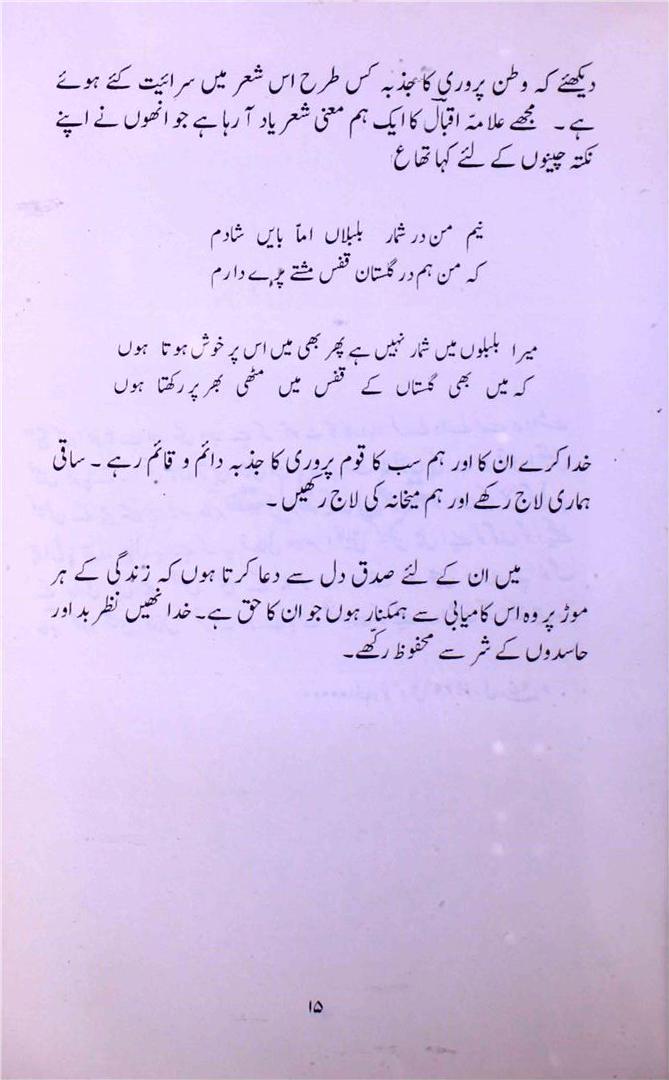 دیکھئے کہ وطن پروری کا جذبہ کس طرح اس شعر میں سرائیت کئے ہوئے
ہے ۔ مجھے علامہّ اقبالؔ کا ایک ہم معنی شعر یاد آ رہا ہے جو انھوں نے اپنے
نکتہ چینوں کے لئے کہا تھا ع
نیم من در شمار بلبلاں امّا بایں شادم
کہ من ہم در گلستان قفس مشتے پرے دارم
میرا بلبلوں میں شمار نہیں ہے پھر بھی میں اس پر خوش ہوتا ہوں
کہ میں بھی گلستاں کے قفس میں مٹھی بھر پر رکھتا ہوں
خدا کرے ان کا اور ہم سب کا قوم پروری کا جذبہ دائم و قائم رہے ۔ ساقی
ہماری لاج رکھے اور ہم میخانہ کی لاج رکھیں ۔
میں ان کے لئے صدق دل سے دعا کرتا ہوں کہ زندگی کے ہر
موڑ پر وہ اس کامیابی سے ہمکنار ہوں جو ان کا حق ہے ۔ خدا انھیں نظر بد اور
حاسدوں کے شر سے محفوظ رکھّے ۔
۱۵